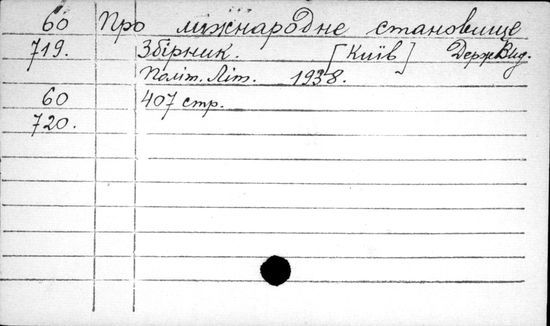 60 Про міжнародне становище
719. Збірник. [Київ] Держ. Вид.
Політ. Літ. 1938.
60 407 стр.
720.